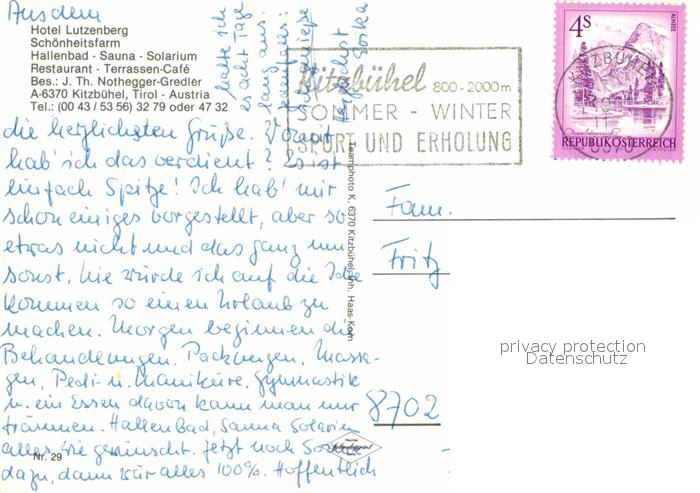 Aus dem
Hotel Lutzenberg
Schönheitsfarm
Hallenbad - Sauna - Solarium
Restaurant - Terrassen-Café
Bes.: J. Th. Nothegger-Gredler
A-6370 Kitzbühel, Tirol - Austria
Tel.: (00 43 / 53 56) 32 79 oder 47 32
die herzlichsten Grüße. Womit
hab' ich das verdient? Es ist
einfach Spitze! Ich hab' mir
schon einiges vorgestellt, aber so
etwas nicht und das ganz um
sonst. Nie würde ich auf die Idee
kommen so einen Urlaub zu
machen. Morgen beginnen die
Behandlungen. Packungen, Massa-
gen, Pedi- u. Maniküre, Gymnastik
u. ein Essen davon kann man nur
träumen. Hallenbad, Sauna Solarium
alles, wie gewünscht. Jetzt noch Sonne
dazu, dann wär alles 100%. Hoffentlich
halte ich
es acht Tage
lang aus.
Nr. 29
Teamphoto K, 6370 Kitzbühel, Inh. Haas-Korn
Kitzbühel 800-2000m
SOMMER - WINTER
SPORT UND ERHOLUNG
4S
ALMSEE
KITZBÜHEL
6370
REPUBLIK ÖSTERREICH
Fam.
Fritz
8702
privacy protection
Datenschutz